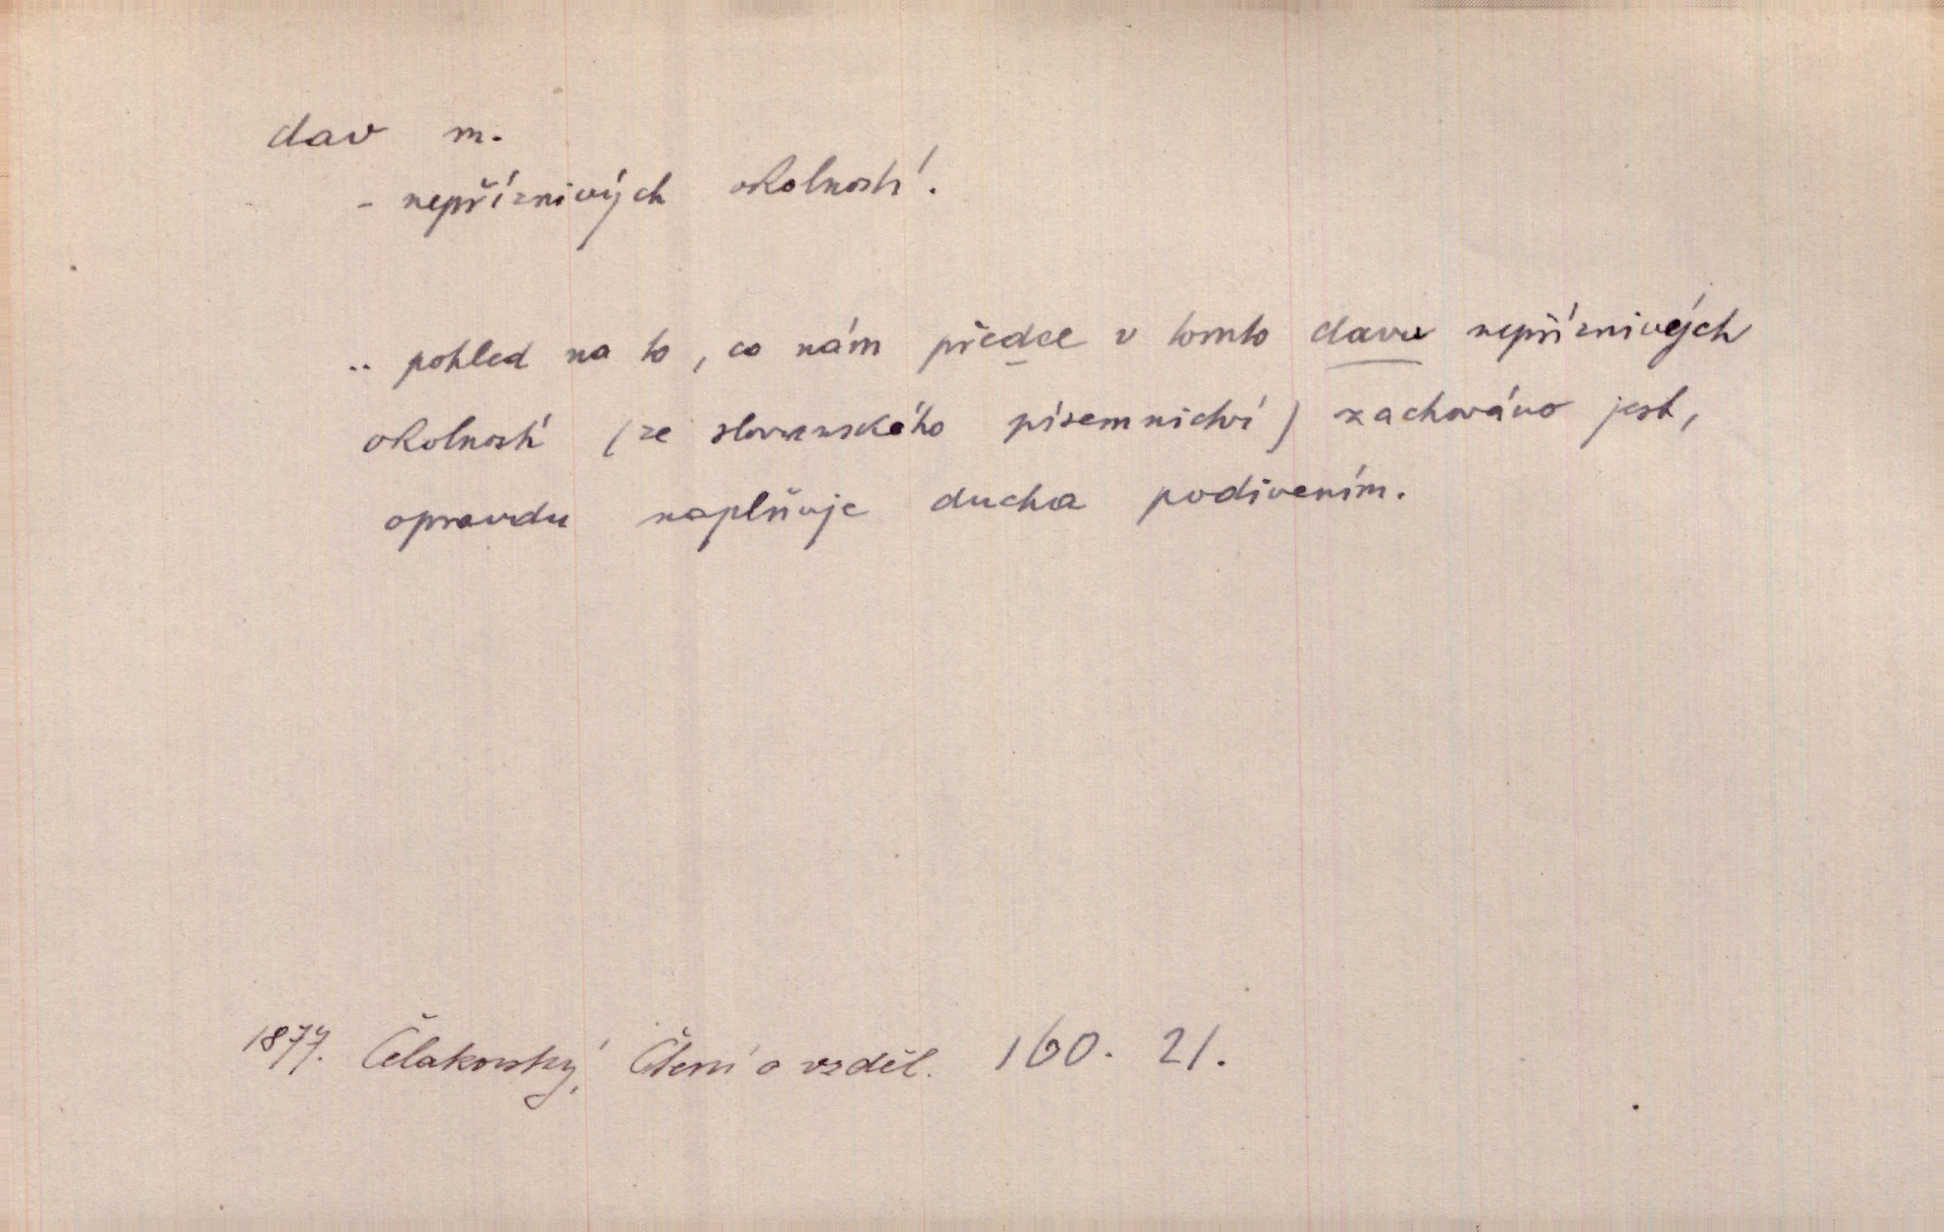 dav m.
- nepříznivých okolností.
.. pohled na to, co nám předce v tomto davu nepříznivých
okolností (ze slovanského písemnictví) zachováno jest,
opravdu naplňuje ducha podivením.
1877. Čelakovský, Čtení o vzděl. 160. 21.